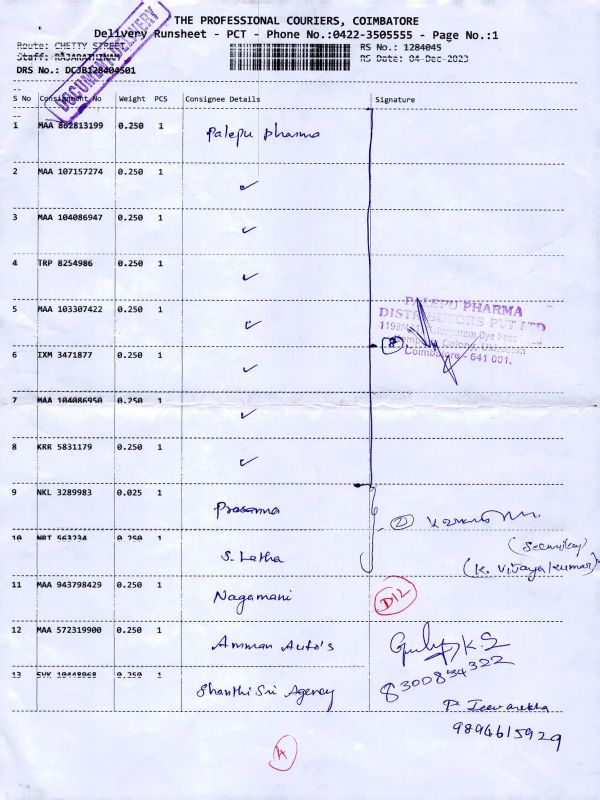 THE PROFESSIONAL COURIERS, COIMBATORE
Delivery Runsheet - PCT - Phone No.:0422-3505555 - Page No.:1
Route: CHETTY STREET
RS No.: 1284045
Staff: RAJARATHINAM
RS Date: 04-Dec-2023
DRS No.: DCJB128404501
DOCUMENT DELIVERY
S No Consignment No Weight PCS Consignee Details Signature
1 MAA 862813199 0.250 1 Palepu pharma
2 MAA 107157274 0.250 1 ✓
3 MAA 104086947 0.250 1 ✓
4 TRP 8254986 0.250 1 ✓
5 MAA 103307422 0.250 1 ✓
PALEPU PHARMA
DISTRIBUTORS PVT LTD
Colony, Ukkadam
Coimbatore - 641 001.
8
6 IXM 3471877 0.250 1 ✓
7 MAA 104086950 0.250 1 ✓
8 KRR 5831179 0.250 1 ✓
9 NKL 3289983 0.025 1 Prasanna
2
10 NRT 563234 0.250 1 S. Latha
(K. Vijayakumar)
11 MAA 943798429 0.250 1 Nagamani D12
12 MAA 572319900 0.250 1 Amman Auto's
8300834322
13 SVK 10448968 0.250 1 Shanthi Sri Agency
P Jeevarekha
9894615929
A